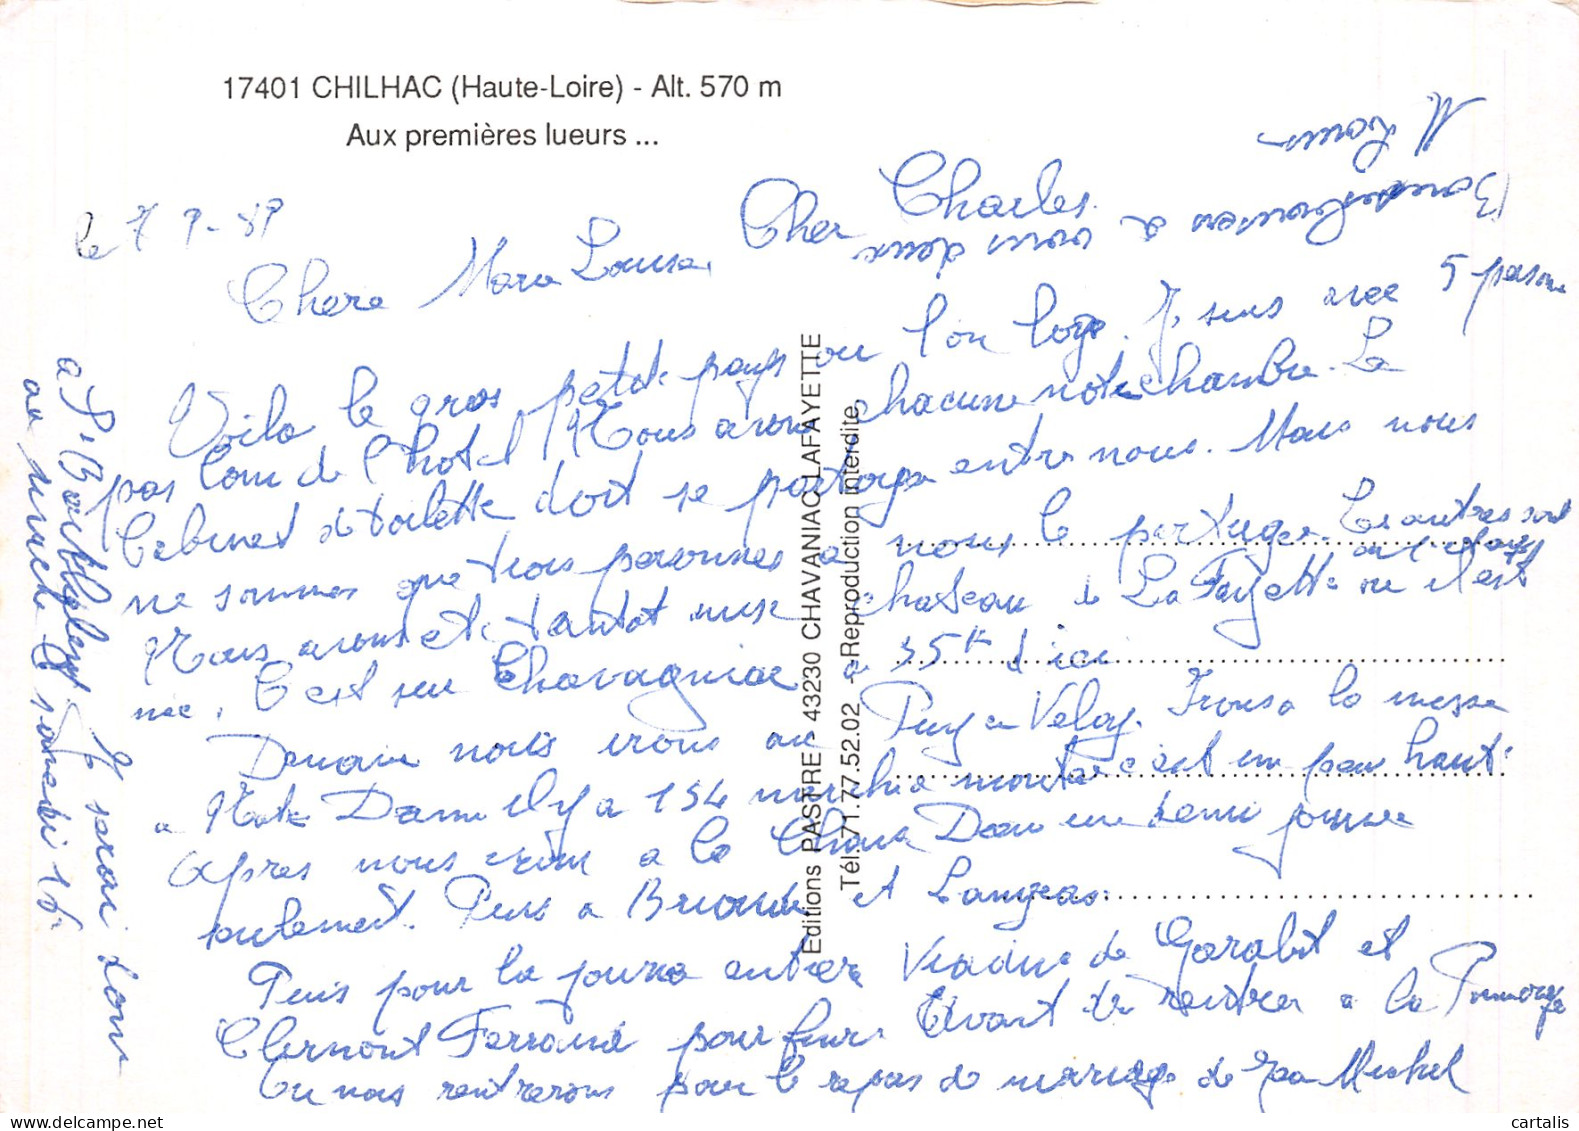 17401 CHILHAC (Haute-Loire) - Alt. 570 m
Aux premières lueurs ...
le 7 9-89
Chere Marie Louise, Cher Charles
Voila le gros petit pays ou l'on loge. Je suis avec 5 personne
pas loin de l'hotel Nous avons chacune notre chambre. Le
Cabinet de toilette doit se partager entre nous. Mais nous
ne sommes que trois personnes a nous le partager. Les autres sont
Nous avons et tantot chateau de La Fayette ou il est
né. C'est sur Chavagniac a 35k d'ici
Demain nous irons au Puy en Velay. Irons a la messe
a Notre Dame il y a 134 marche a monter c'est un peu haut
Apres nous irons a la Chaise Dieu une demi journee
seulement. Puis a Brioude et Langeac.
Puis pour la journee entiere Viaduc de Garabit et
Clermont Ferrand pour finir. Avant de rentrer a la
Ou nous rentrerons pour le repas de mariage de Jean Michel
a St. Je serai
au le samedi 16.
Bons baisers a vous deux
Editions PASTRE - 43230 CHAVANIAC LAFAYETTE
Tél. 71.77.52.02 - Reproduction interdite
cartalis